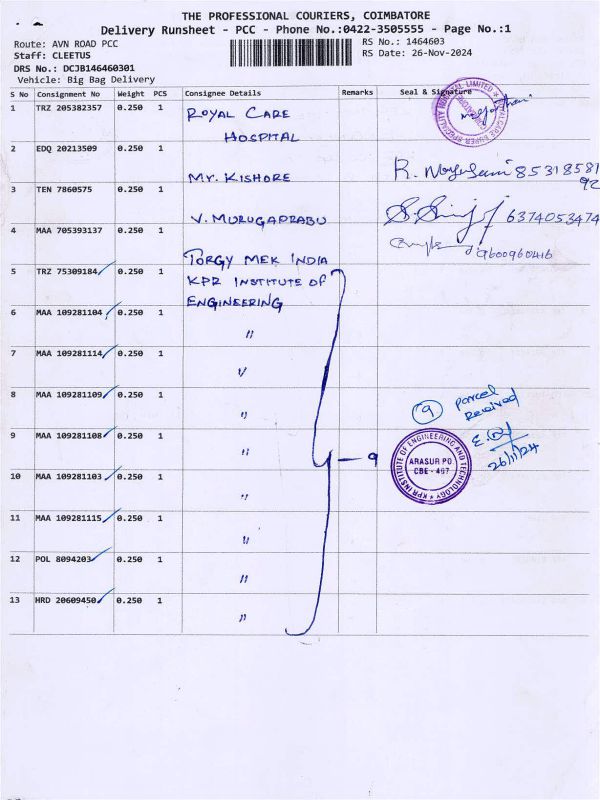 THE PROFESSIONAL COURIERS, COIMBATORE
Delivery Runsheet - PCC - Phone No.:0422-3505555 - Page No.:1
Route: AVN ROAD PCC
RS No.: 1464603
Staff: CLEETUS
RS Date: 26-Nov-2024
DRS No.: DCJB146460301
Vehicle: Big Bag Delivery
S No Consignment No Weight PCS Consignee Details Remarks Seal & Signature
1 TRZ 205382357 0.250 1 ROYAL CARE
HOSPITAL
2 EDQ 20213509 0.250 1
MR. KISHORE R.
3 TEN 7860575 0.250 1
V. MURUGAPRABU 6374053474
4 MAA 705393137 0.250 1
TORGY MEK INDIA 9600960416
5 TRZ 75309184 0.250 1 KPR INSTITUTE OF
ENGINEERING
6 MAA 109281104 0.250 1 "
7 MAA 109281114 0.250 1 "
8 MAA 109281109 0.250 1 "
9 parcel
Received
26/11/24
9 MAA 109281108 0.250 1 "
- 9
KPR INSTITUTE OF ENGINEERING AND TECHNOLOGY
ARASUR PO
CBE - 407
10 MAA 109281103 0.250 1 "
11 MAA 109281115 0.250 1 "
12 POL 8094203 0.250 1 "
13 HRD 20609450 0.250 1 "